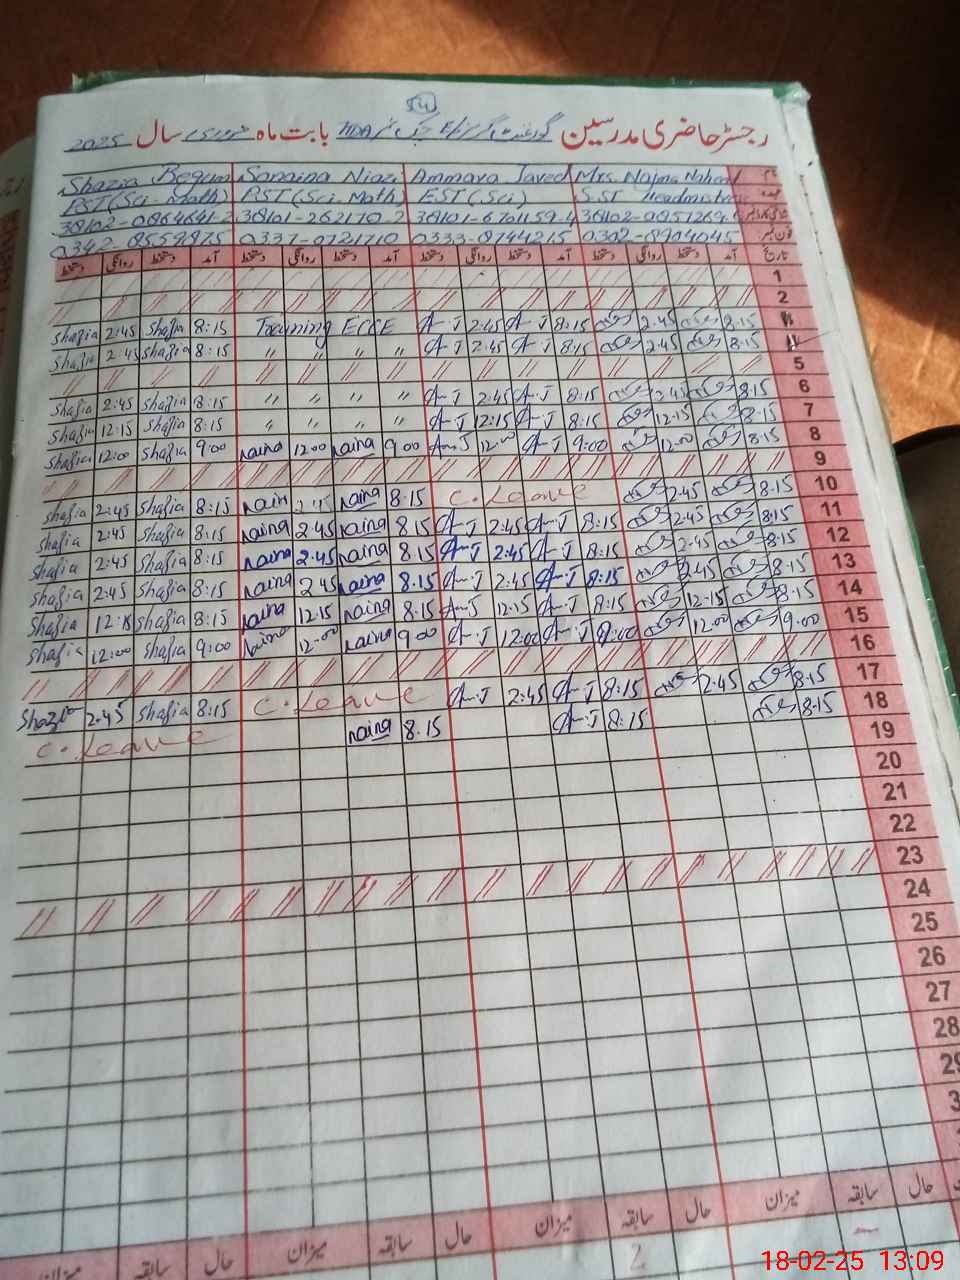 54
رجسٹر حاضری مدرسین گورنمنٹ گرلز E/S چک نمبر TDA بابت ماہ فروری سال 2025
Shazia Begum Samina Niazi Ammara Javed Mrs. Najma Naheed نام
PST (Sci-Math) PST (Sci. Math) EST (Sci) S.ST Headmistress عہدہ
38102-0864641-2 38101-262170-2 38101-6701159-4
0342-8559875 0337-0721710 0333-8744215 0302-8904045 فون نمبر
دستخط روانگی دستخط آمد دستخط روانگی دستخط آمد دستخط روانگی دستخط آمد دستخط روانگی دستخط آمد تاریخ
1
2
Shazia 2:45 Shazia 8:15 Training ECCE A-J 2:45 A-J 8:15 2:45 8:15
Shazia 2:45 Shazia 8:15 " " " " A-J 2:45 A-J 8:15 2:45 8:15
5
Shazia 2:45 Shazia 8:15 " " " " A-J 2:45 A-J 8:15 2:45 8:15 6
Shazia 12:15 Shazia 8:15 " " " " A-J 12:15 A-J 8:15 12:15 8:15 7
Shazia 12:00 Shazia 9:00 naina 12:00 naina 9:00 A-J 12:00 A-J 9:00 12:00 8:15 8
9
Shazia 2:45 Shazia 8:15 naina 2:45 naina 8:15 C.Leave 2:45 8:15 10
Shazia 2:45 Shazia 8:15 naina 2:45 naina 8:15 A-J 2:45 A-J 8:15 2:45 8:15 11
Shazia 2:45 Shazia 8:15 naina 2:45 naina 8:15 A-J 2:45 A-J 8:15 2:45 8:15 12
Shazia 2:45 Shazia 8:15 naina 2:45 naina 8:15 A-J 2:45 A-J 8:15 2:45 8:15 13
Shazia 12:15 Shazia 8:15 naina 12:15 naina 8:15 A-J 12:15 A-J 8:15 12:15 8:15 14
Shazia 12:00 Shazia 9:00 naina 12:00 naina 9:00 A-J 12:00 A-J 9:00 12:00 9:00 15
16
Shazia 2:45 Shazia 8:15 C.Leave A-J 2:45 A-J 8:15 2:45 8:15 17
C.Leave naina 8:15 A-J 8:15 8:15 18
19
20
21
22
23
24
25
26
27
28
29
3
میزان سابقہ حال میزان سابقہ حال میزان سابقہ حال میزان سابقہ حال
2
18-02-25 13:09